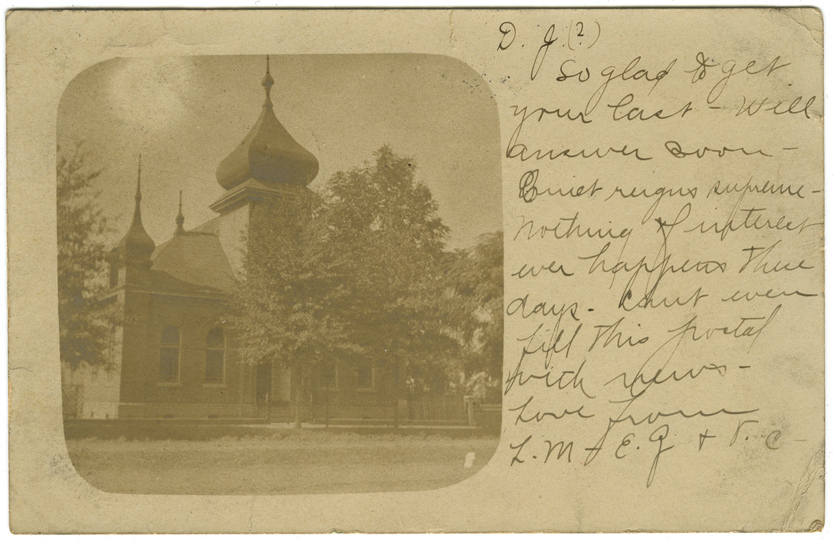 D. J. (?)
So glad to get
your last - Will
answer soon -
Quiet reigns supreme -
Nothing of interest
ever happens these
days - Cant even
fill this postal
with news -
Love from
L. M + E. J + V. C -